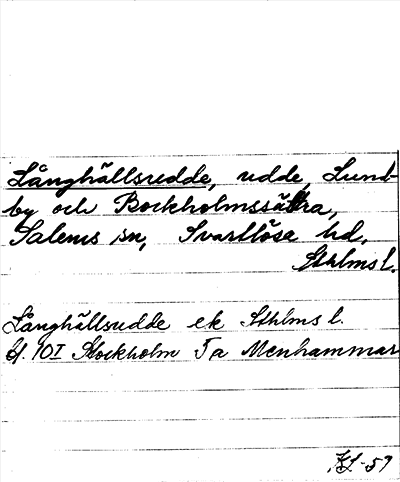 Långhällsudde, udde, Lund-
by och Bockholmssätra,
Salems sn, Svartlösa hd,
Sthlms l.
Långhällsudde ek Sthlms l.
bl. 10I Stockholm 5a Menhammar